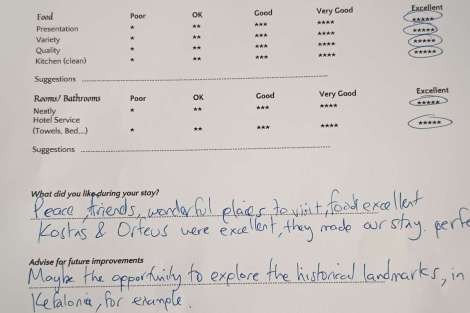 Food Poor OK Good Very Good Excellent
Presentation * ** *** **** *****
Variety * ** *** **** *****
Quality * ** *** **** *****
Kitchen (clean) * ** *** **** *****
Suggestions
Rooms/ Bathrooms Poor OK Good Very Good Excellent
Neatly * ** *** **** *****
Hotel Service
(Towels, Bed...) * ** *** **** *****
Suggestions
What did you like during your stay?
Peace, friends, wonderful places to visit, food excellent
Kostas & Orteus were excellent, they made our stay. perfe
Advise for future improvements
Maybe the opportunity to explore the historical landmarks, in
Kefalonia, for example.